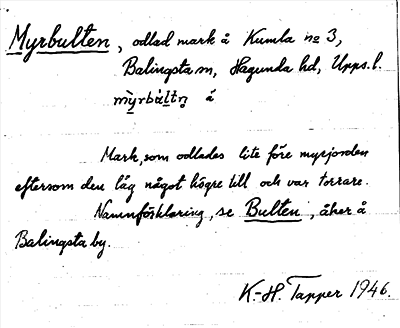 Myrbulten, odlad mark å Kumla no 3,
Balingsta sn, Hagunda hd, Upps. l.
mỳrbùltn̥ å
Mark, som odlades lite före myrjorden
eftersom den låg något högre till och var torrare.
Namnförklaring, se Bulten, åker å
Balingsta by.
K.-H. Tapper 1946.